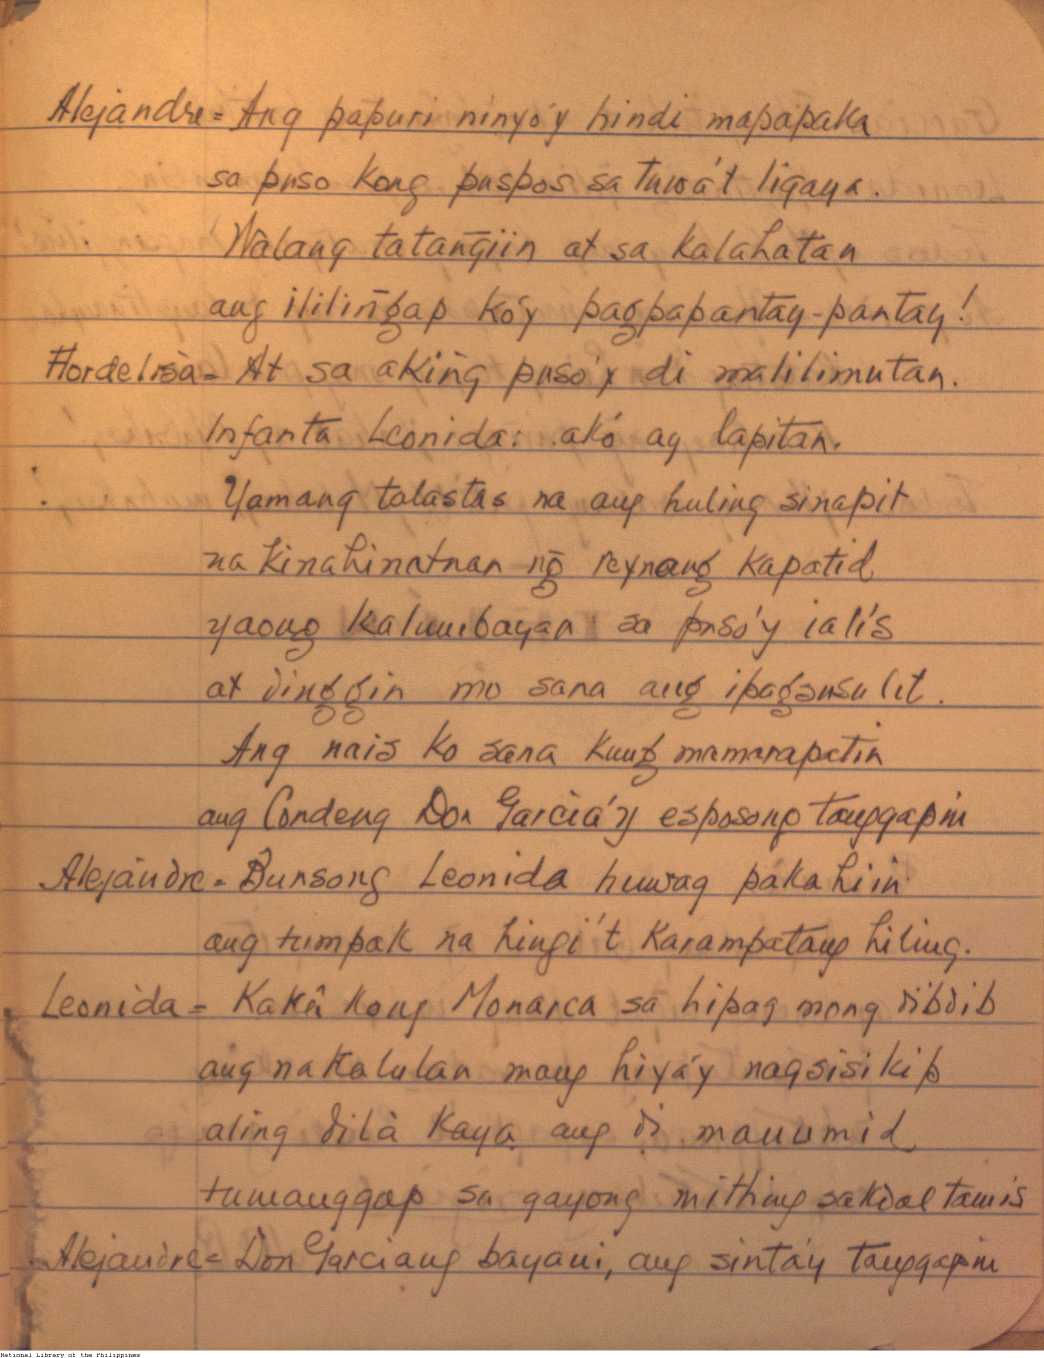 Alejandre = Ang papuri ninyo'y hindi mapapaka
sa puso kong puspos sa tuwa't ligaya.
Walang tatang̃iin at sa kalahatan
ang ililing̃ap ko'y pagpapantay-pantay!
Flordelisa = At sa aking puso'y di malilimutan.
Infanta Leonida: ako ay lapitan.
Yamang talastas na ang huling sinapit
na kinahinatnan ng̃ reynang kapatid
yaong kalumbayan sa puso'y ialis
at dinggin mo sana ang ipagsusulit.
Ang nais ko sana kung mamarapatin
ang Condeng Don Garcia'y esposong tanggapin
Alejandre = Bunsong Leonida huwag pakahiin
ang tumpak na hingi't karampatang hiling.
Leonida = Kaka kong Monarca sa hipag mong dibdib
ang nakalulan mang hiya'y nagsisikip
aling dila kaya ang di mauumid
tumanggap sa gayong mithing sakdal tamis
Alejandre = Don Garciang bayani, ang sinta'y tanggapin
National Library of the Philippines